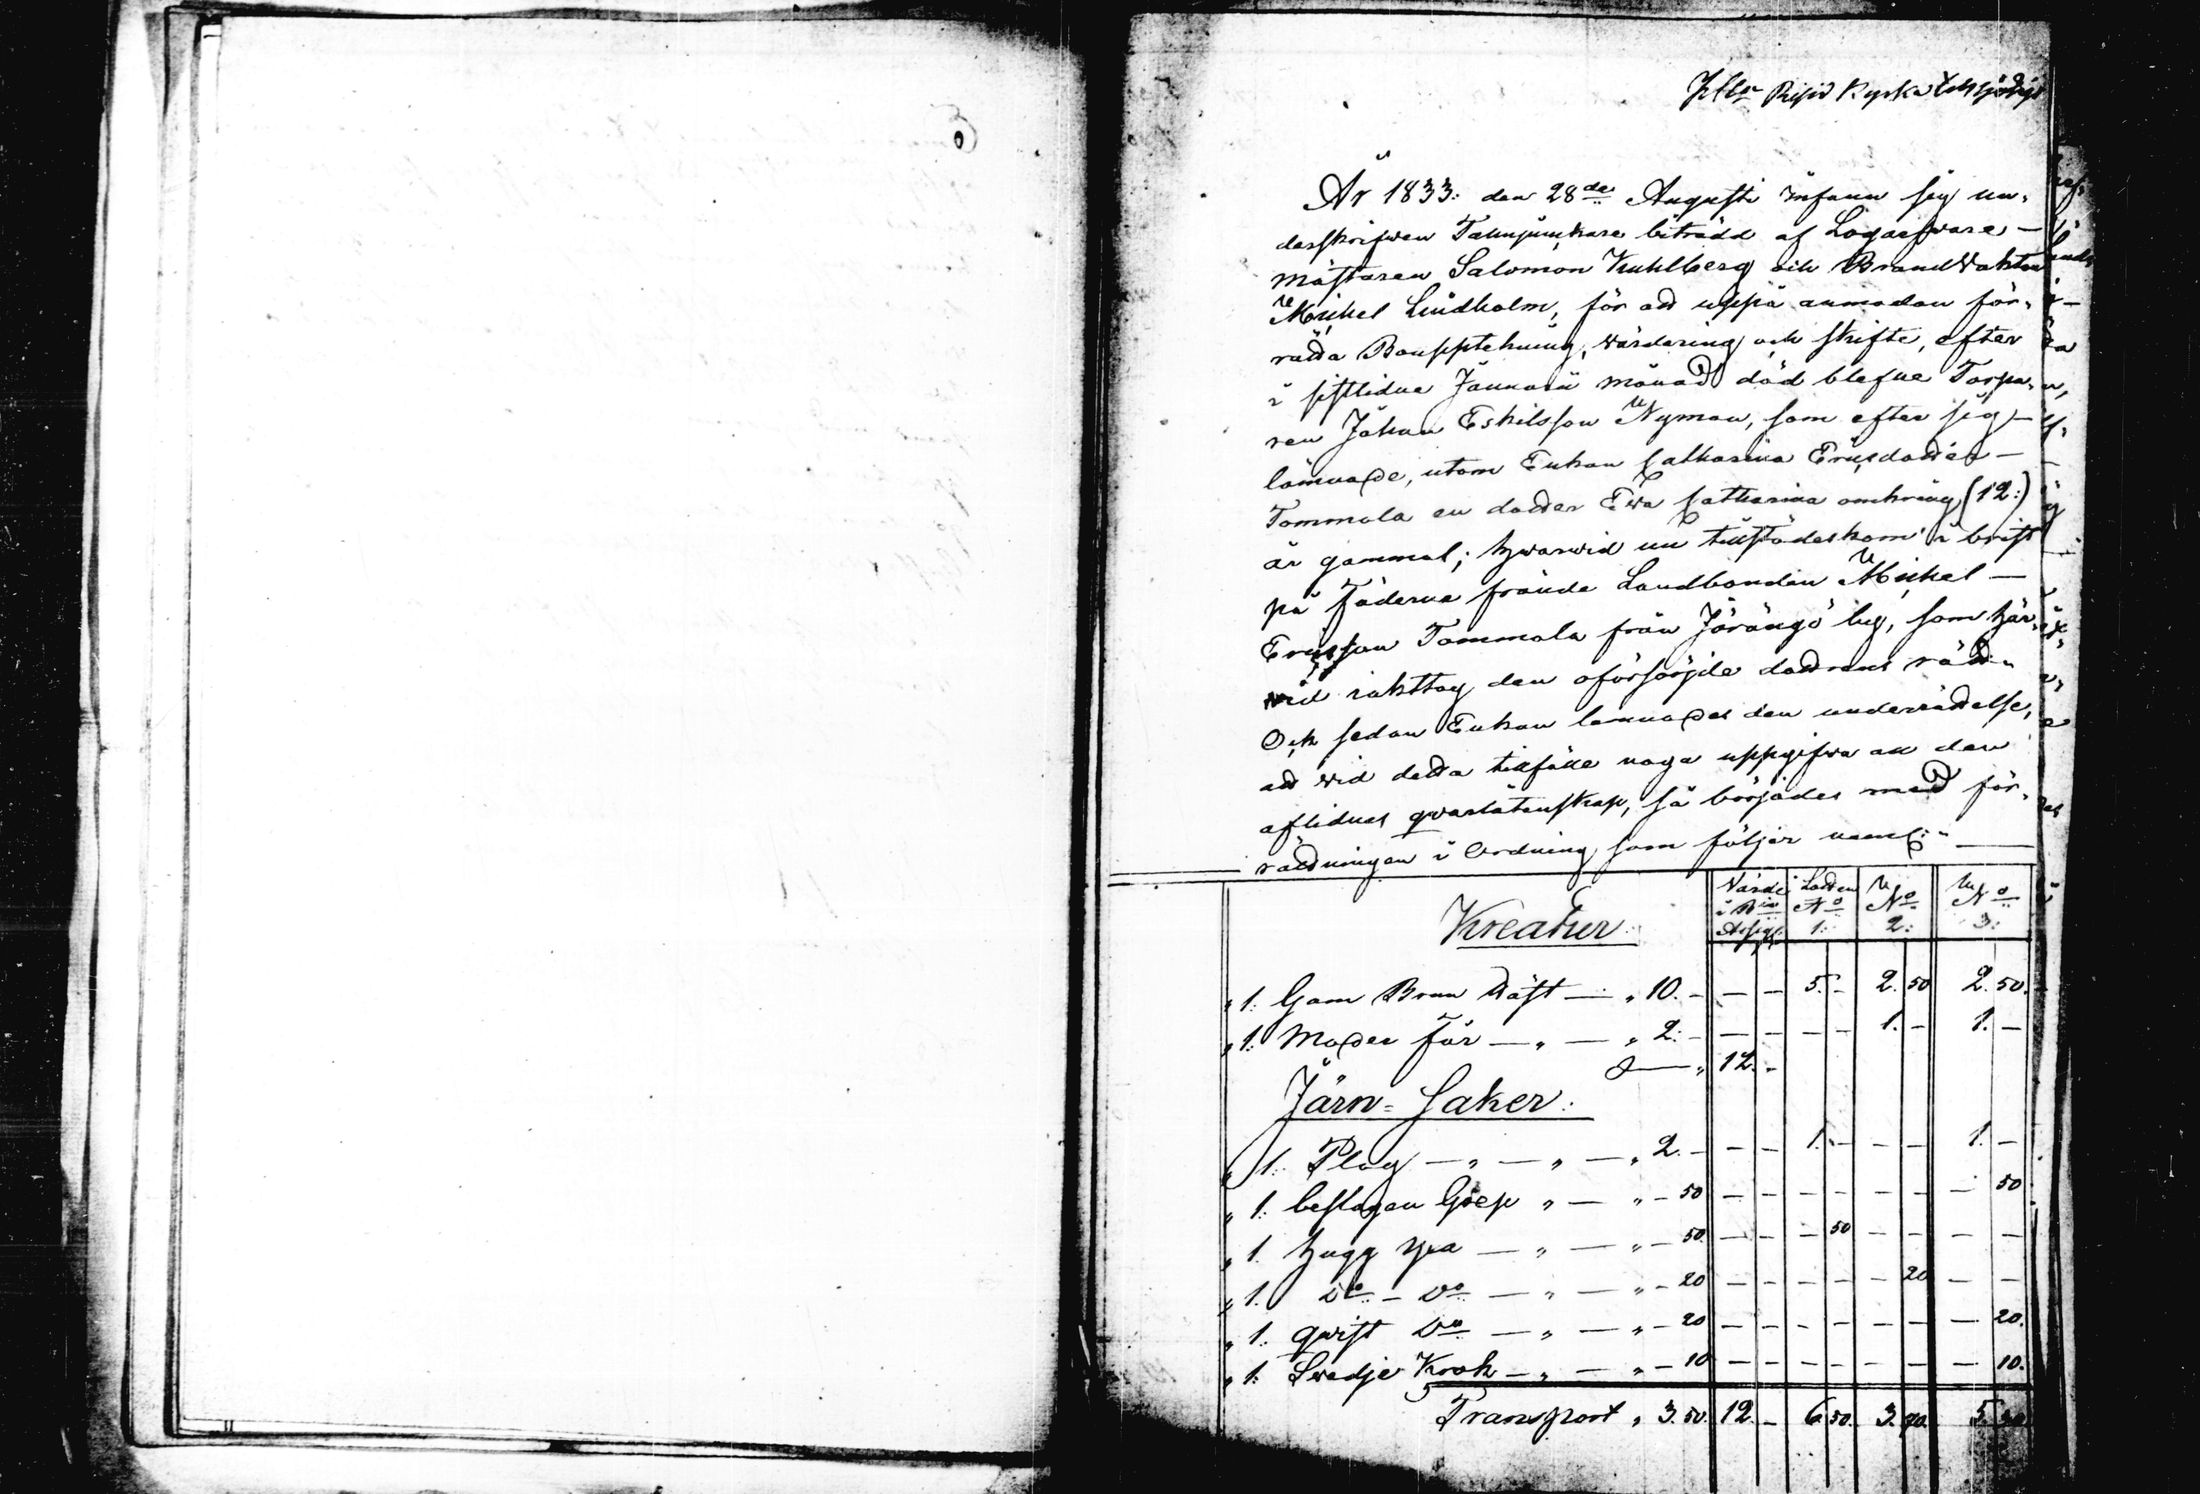 År 1833: den 28de Augusti infann sig un-
derskrifwen Fannjunkare biträdd af Lögaefware-
mästaren Salomon Kuhlberg och Brandwakten
Michel Lindholm, för att uppå anmodan för-
rätta Boupptekning, wärdering och skifte, efter
i sistlidne Januarii månad död blefne Torpa-
ren Johan Eskilsson Nyman, som efter sig
lämnade, utom Enkan Catharina Ericsdotter
Tommola en dotter Ewa Catharina omkring (12:)
år gammal; hwarwid nu tillstädeskom i brist
på Fäderne frände Landbonden Michel
Ericsson Tommola från by, som här-
wid iakttog den oförsörjde dottrens rätt
Och sedan Enkan lämnades den underrättelse,
att wid detta tillfälle noga uppgifwa all den
aflidnes qwarlåtenskap, så börjades med för-
rättningen i Ordning som följer neml:
Kreatur
Värde i Rub Assig: Lotten No 1: No 2: No 3:
1: Gam Brun Häst — 10. — — 5. — 2. 50 2. 50.
1: Moder Får — 2: — — — 1. — 1. —
12. —
Järn-Saker:
1: Plog — 2. — — 1. — — — 1. —
1: beslagen Grep — 50 — — — — — — — 50
1. hugg yxa — 50. — — — 50 — — — —
1. Do — Do — 20 — — — — — 20 — —
1. qwist Do — 20 — — — — — — — 20.
1: Swedje Krok — 10 — — — — — — — 10.
Transport 3. 50. 12. — 6. 50. 3. 70. 5. 30